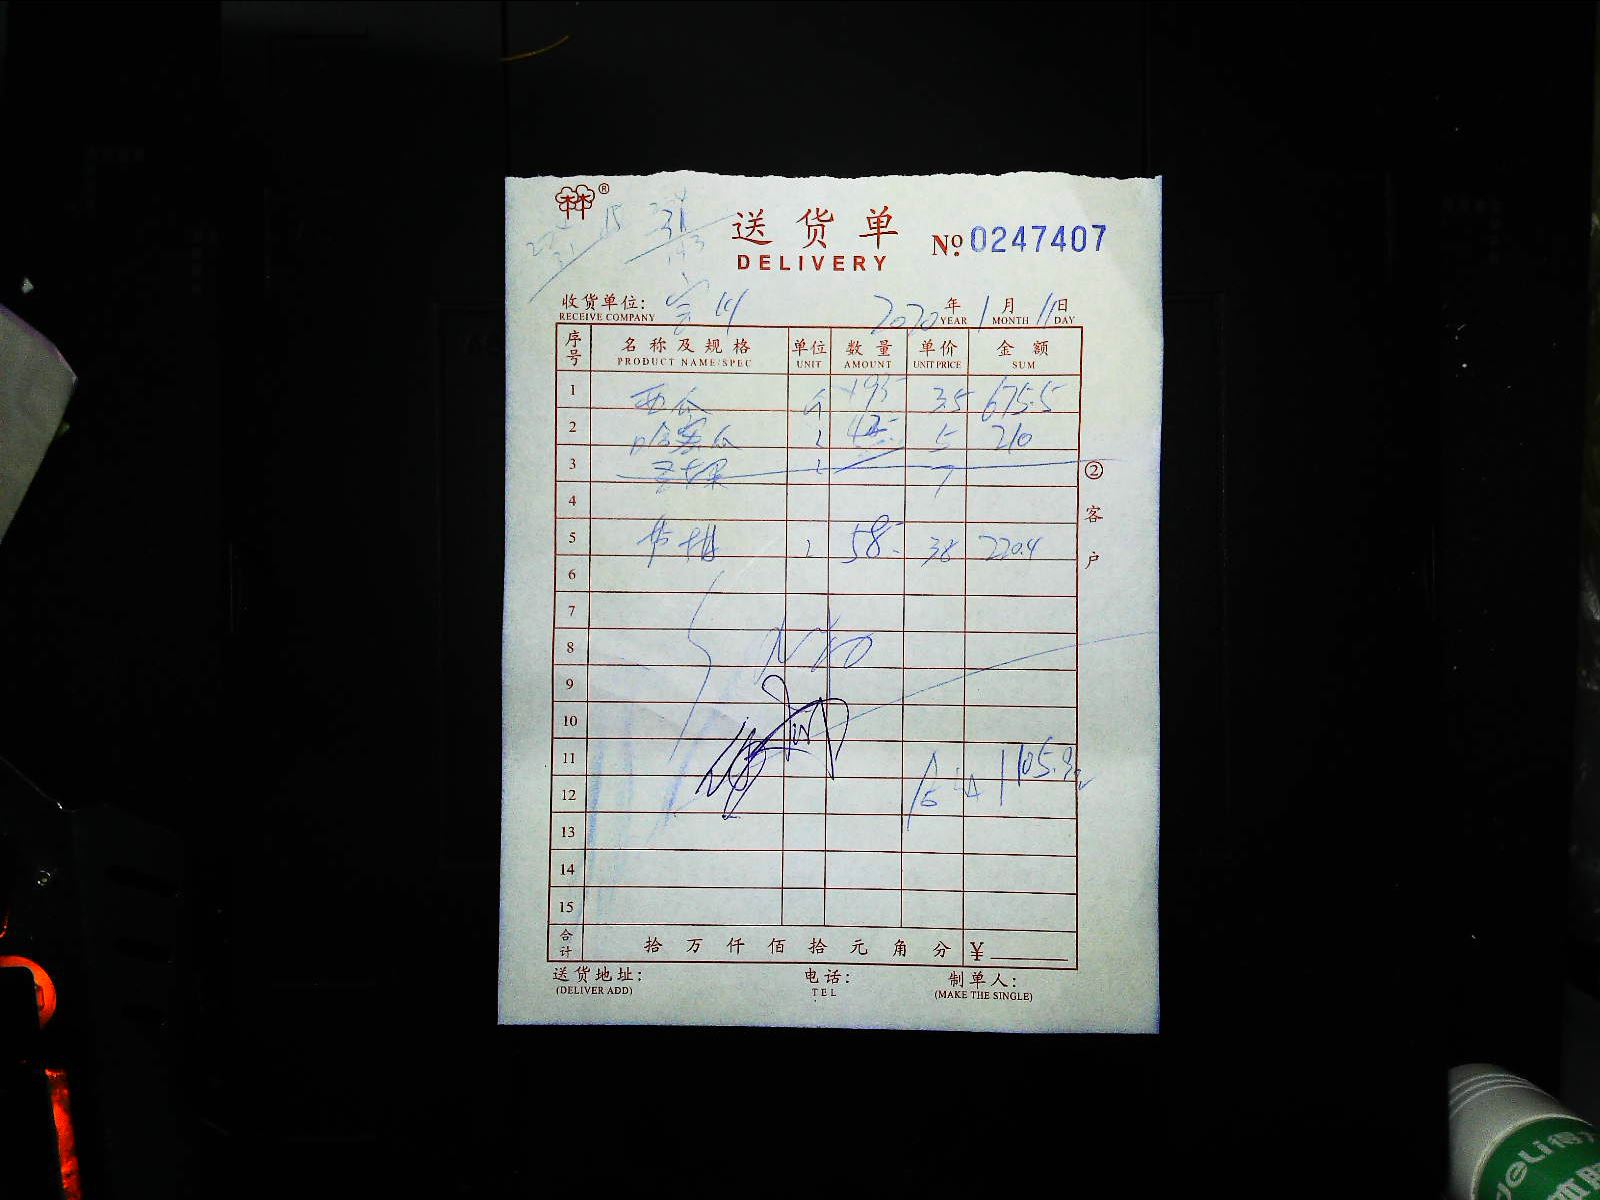 林®
送货单 No 0247407
DELIVERY
收货单位: 2020年1月11日
RECEIVE COMPANY YEAR MONTH DAY
序号 名称及规格 单位 数量 单价 金额
PRODUCT NAME/SPEC UNIT AMOUNT UNIT PRICE SUM
1 西瓜 斤 193 3.5 675.5
2 哈密瓜 42 5 210
3 7
4
5 58 38 220.4
6
7
8
9
10
11
12 合计 1105.9元
13
14
15
合计 拾万仟佰拾元角分 ¥
送货地址: 电话: 制单人:
(DELIVER ADD) TEL (MAKE THE SINGLE)
② 客户
deli 得力